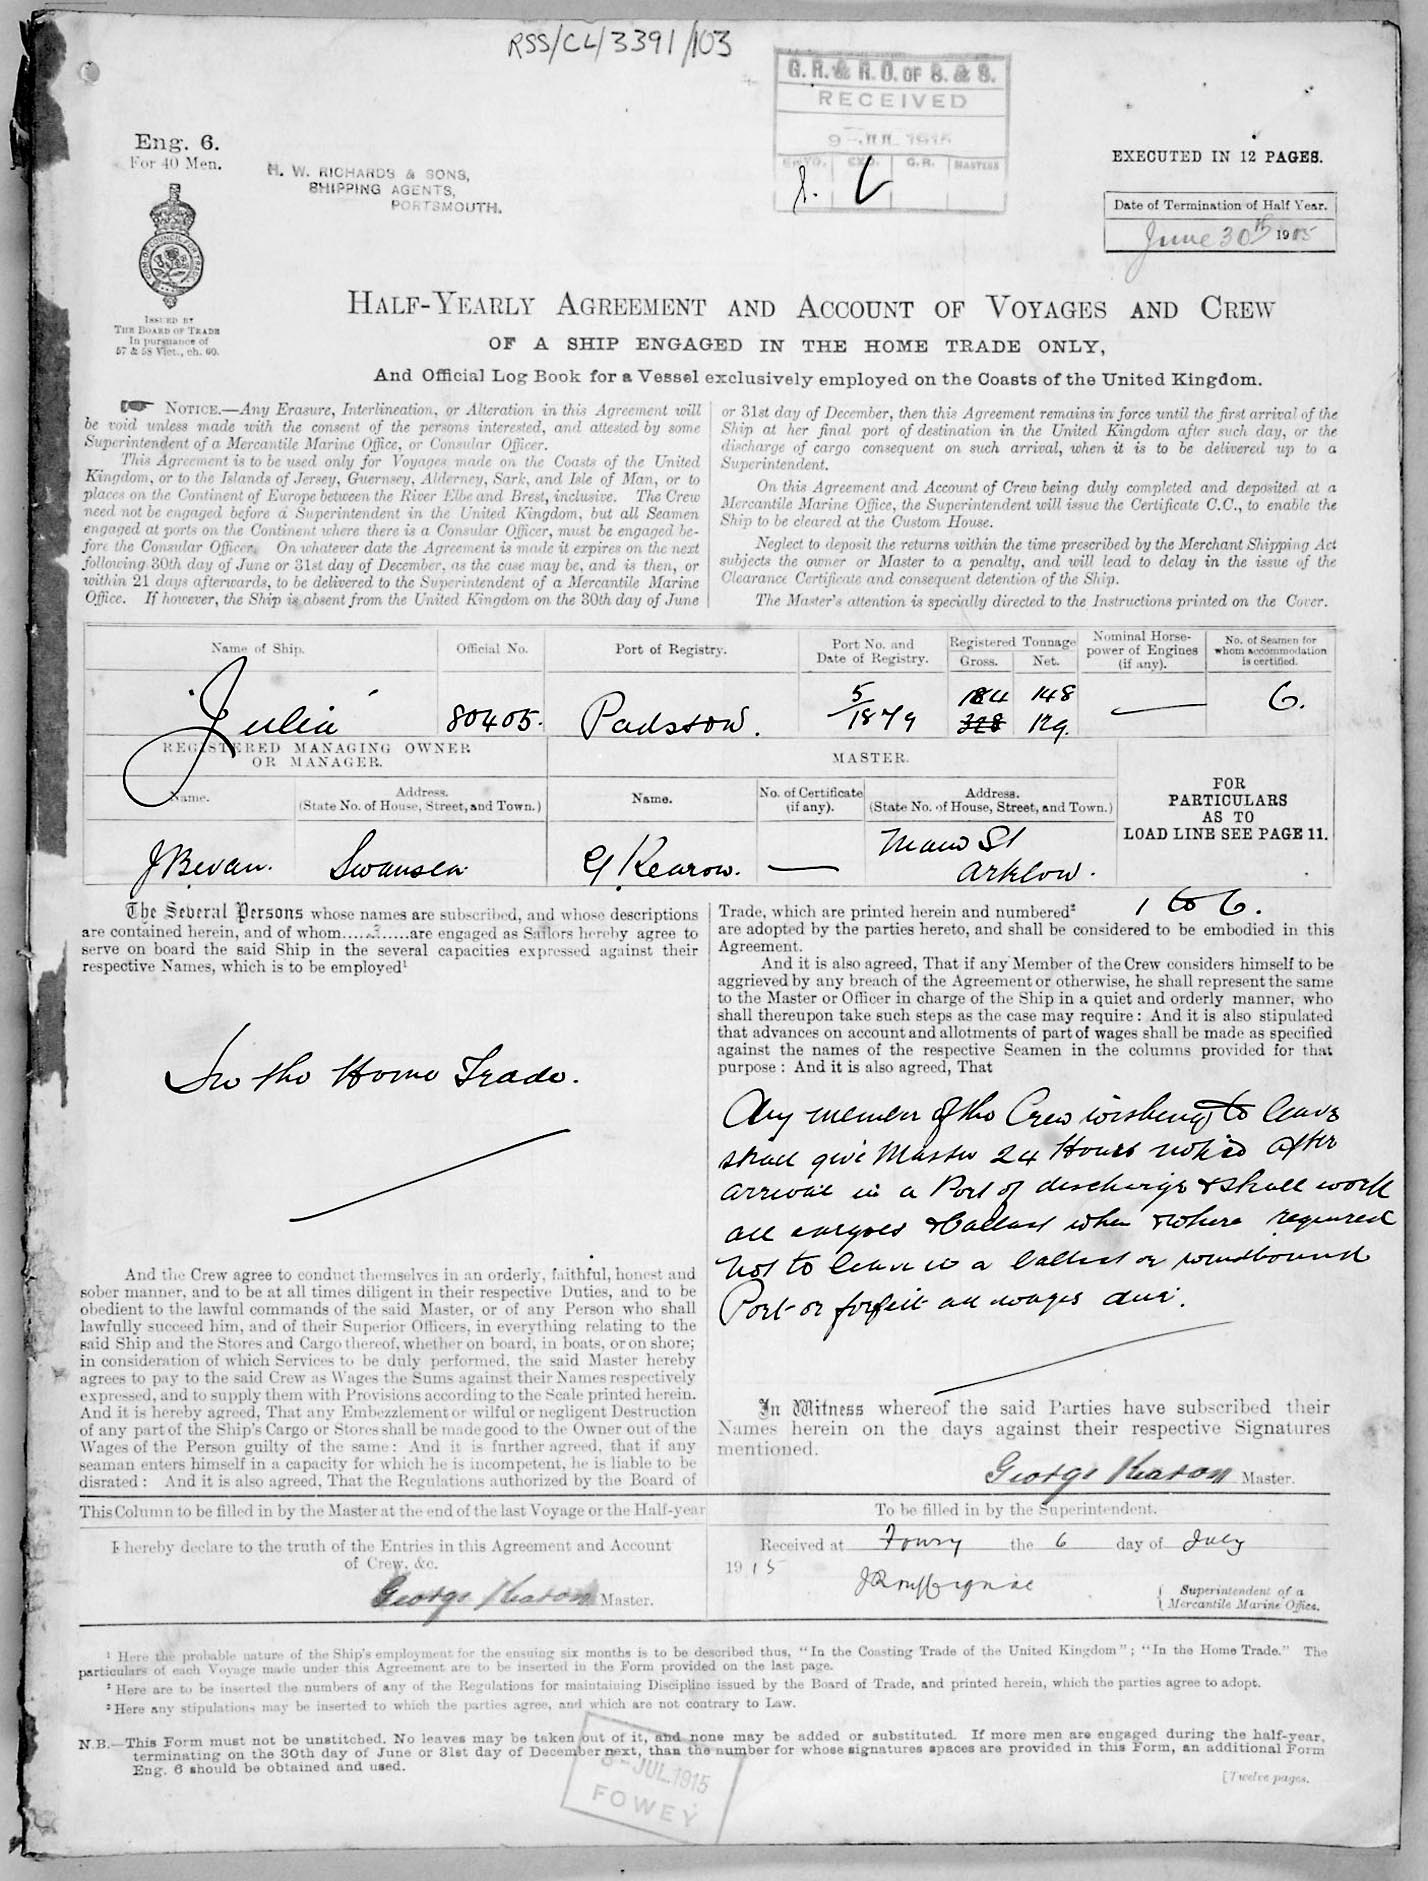 RSS/CL/3391/103
G. R. & R. O. OF S. & S.
RECEIVED
9 - JUL 1915
G.R. MASTERS
Eng. 6.
For 40 Men.
H. W. RICHARDS & SONS,
SHIPPING AGENTS,
PORTSMOUTH.
EXECUTED IN 12 PAGES.
Date of Termination of Half Year.
June 30th 1915
ISSUED BY
THE BOARD OF TRADE
In pursuance of
57 & 58 Vict., ch. 60.
HALF-YEARLY AGREEMENT AND ACCOUNT OF VOYAGES AND CREW
OF A SHIP ENGAGED IN THE HOME TRADE ONLY,
And Official Log Book for a Vessel exclusively employed on the Coasts of the United Kingdom.
NOTICE.—Any Erasure, Interlineation, or Alteration in this Agreement will
be void unless made with the consent of the persons interested, and attested by some
Superintendent of a Mercantile Marine Office, or Consular Officer.
This Agreement is to be used only for Voyages made on the Coasts of the United
Kingdom, or to the Islands of Jersey, Guernsey, Alderney, Sark, and Isle of Man, or to
places on the Continent of Europe between the River Elbe and Brest, inclusive. The Crew
need not be engaged before a Superintendent in the United Kingdom, but all Seamen
engaged at ports on the Continent where there is a Consular Officer, must be engaged be-
fore the Consular Officer. On whatever date the Agreement is made it expires on the next
following 30th day of June or 31st day of December, as the case may be, and is then, or
within 21 days afterwards, to be delivered to the Superintendent of a Mercantile Marine
Office. If however, the Ship is absent from the United Kingdom on the 30th day of June
or 31st day of December, then this Agreement remains in force until the first arrival of the
Ship at her final port of destination in the United Kingdom after such day, or the
discharge of cargo consequent on such arrival, when it is to be delivered up to a
Superintendent.
On this Agreement and Account of Crew being duly completed and deposited at a
Mercantile Marine Office, the Superintendent will issue the Certificate C.C., to enable the
Ship to be cleared at the Custom House.
Neglect to deposit the returns within the time prescribed by the Merchant Shipping Act
subjects the owner or Master to a penalty, and will lead to delay in the issue of the
Clearance Certificate and consequent detention of the Ship.
The Master's attention is specially directed to the Instructions printed on the Cover.
Name of Ship. Official No. Port of Registry. Port No. and Date of Registry. Registered Tonnage Gross. Net. Nominal Horse-power of Engines (if any). No. of Seamen for whom accommodation is certified.
184 148
"Julia" 80405. Padstow. 5/1879 328 129. — 6.
REGISTERED MANAGING OWNER
OR MANAGER.
MASTER.
Name. Address. (State No. of House, Street, and Town.) Name. No. of Certificate (if any). Address. (State No. of House, Street, and Town.)
FOR
PARTICULARS
AS TO
LOAD LINE SEE PAGE 11.
J Bevan. Swansea G Kearon. — Main St
Arklow.
The Several Persons whose names are subscribed, and whose descriptions
are contained herein, and of whom......3.....are engaged as Sailors hereby agree to
serve on board the said Ship in the several capacities expressed against their
respective Names, which is to be employed¹
In the Home Trade.
And the Crew agree to conduct themselves in an orderly, faithful, honest and
sober manner, and to be at all times diligent in their respective Duties, and to be
obedient to the lawful commands of the said Master, or of any Person who shall
lawfully succeed him, and of their Superior Officers, in everything relating to the
said Ship and the Stores and Cargo thereof, whether on board, in boats, or on shore;
in consideration of which Services to be duly performed, the said Master hereby
agrees to pay to the said Crew as Wages the Sums against their Names respectively
expressed, and to supply them with Provisions according to the Scale printed herein.
And it is hereby agreed, That any Embezzlement or wilful or negligent Destruction
of any part of the Ship's Cargo or Stores shall be made good to the Owner out of the
Wages of the Person guilty of the same: And it is further agreed, that if any
seaman enters himself in a capacity for which he is incompetent, he is liable to be
disrated: And it is also agreed, That the Regulations authorized by the Board of
Trade, which are printed herein and numbered² 1 to 6.
are adopted by the parties hereto, and shall be considered to be embodied in this
Agreement.
And it is also agreed, That if any Member of the Crew considers himself to be
aggrieved by any breach of the Agreement or otherwise, he shall represent the same
to the Master or Officer in charge of the Ship in a quiet and orderly manner, who
shall thereupon take such steps as the case may require: And it is also stipulated
that advances on account and allotments of part of wages shall be made as specified
against the names of the respective Seamen in the columns provided for that
purpose: And it is also agreed, That
Any member of the Crew wishing to leave
shall give Master 24 Hours notice after
arrival in a Port of discharge & shall work
all cargoes & ballast when & where required
Not to leave in a ballast or windbound
Port or forfeit all wages due.
In Witness whereof the said Parties have subscribed their
Names herein on the days against their respective Signatures
mentioned.
George Kearon Master.
This Column to be filled in by the Master at the end of the last Voyage or the Half-year
I hereby declare to the truth of the Entries in this Agreement and Account
of Crew, &c.
George Kearon Master.
To be filled in by the Superintendent.
Received at Fowey the 6 day of July
1915
Superintendent of a
Mercantile Marine Office.
¹ Here the probable nature of the Ship's employment for the ensuing six months is to be described thus, "In the Coasting Trade of the United Kingdom"; "In the Home Trade." The
particulars of each Voyage made under this Agreement are to be inserted in the Form provided on the last page.
² Here are to be inserted the numbers of any of the Regulations for maintaining Discipline issued by the Board of Trade, and printed herein, which the parties agree to adopt.
³ Here any stipulations may be inserted to which the parties agree, and which are not contrary to Law.
N.B.—This Form must not be unstitched. No leaves may be taken out of it, and none may be added or substituted. If more men are engaged during the half-year,
terminating on the 30th day of June or 31st day of December next, than the number for whose signatures spaces are provided in this Form, an additional Form
Eng. 6 should be obtained and used.
[Twelve pages.
JUL. 1915
FOWEY